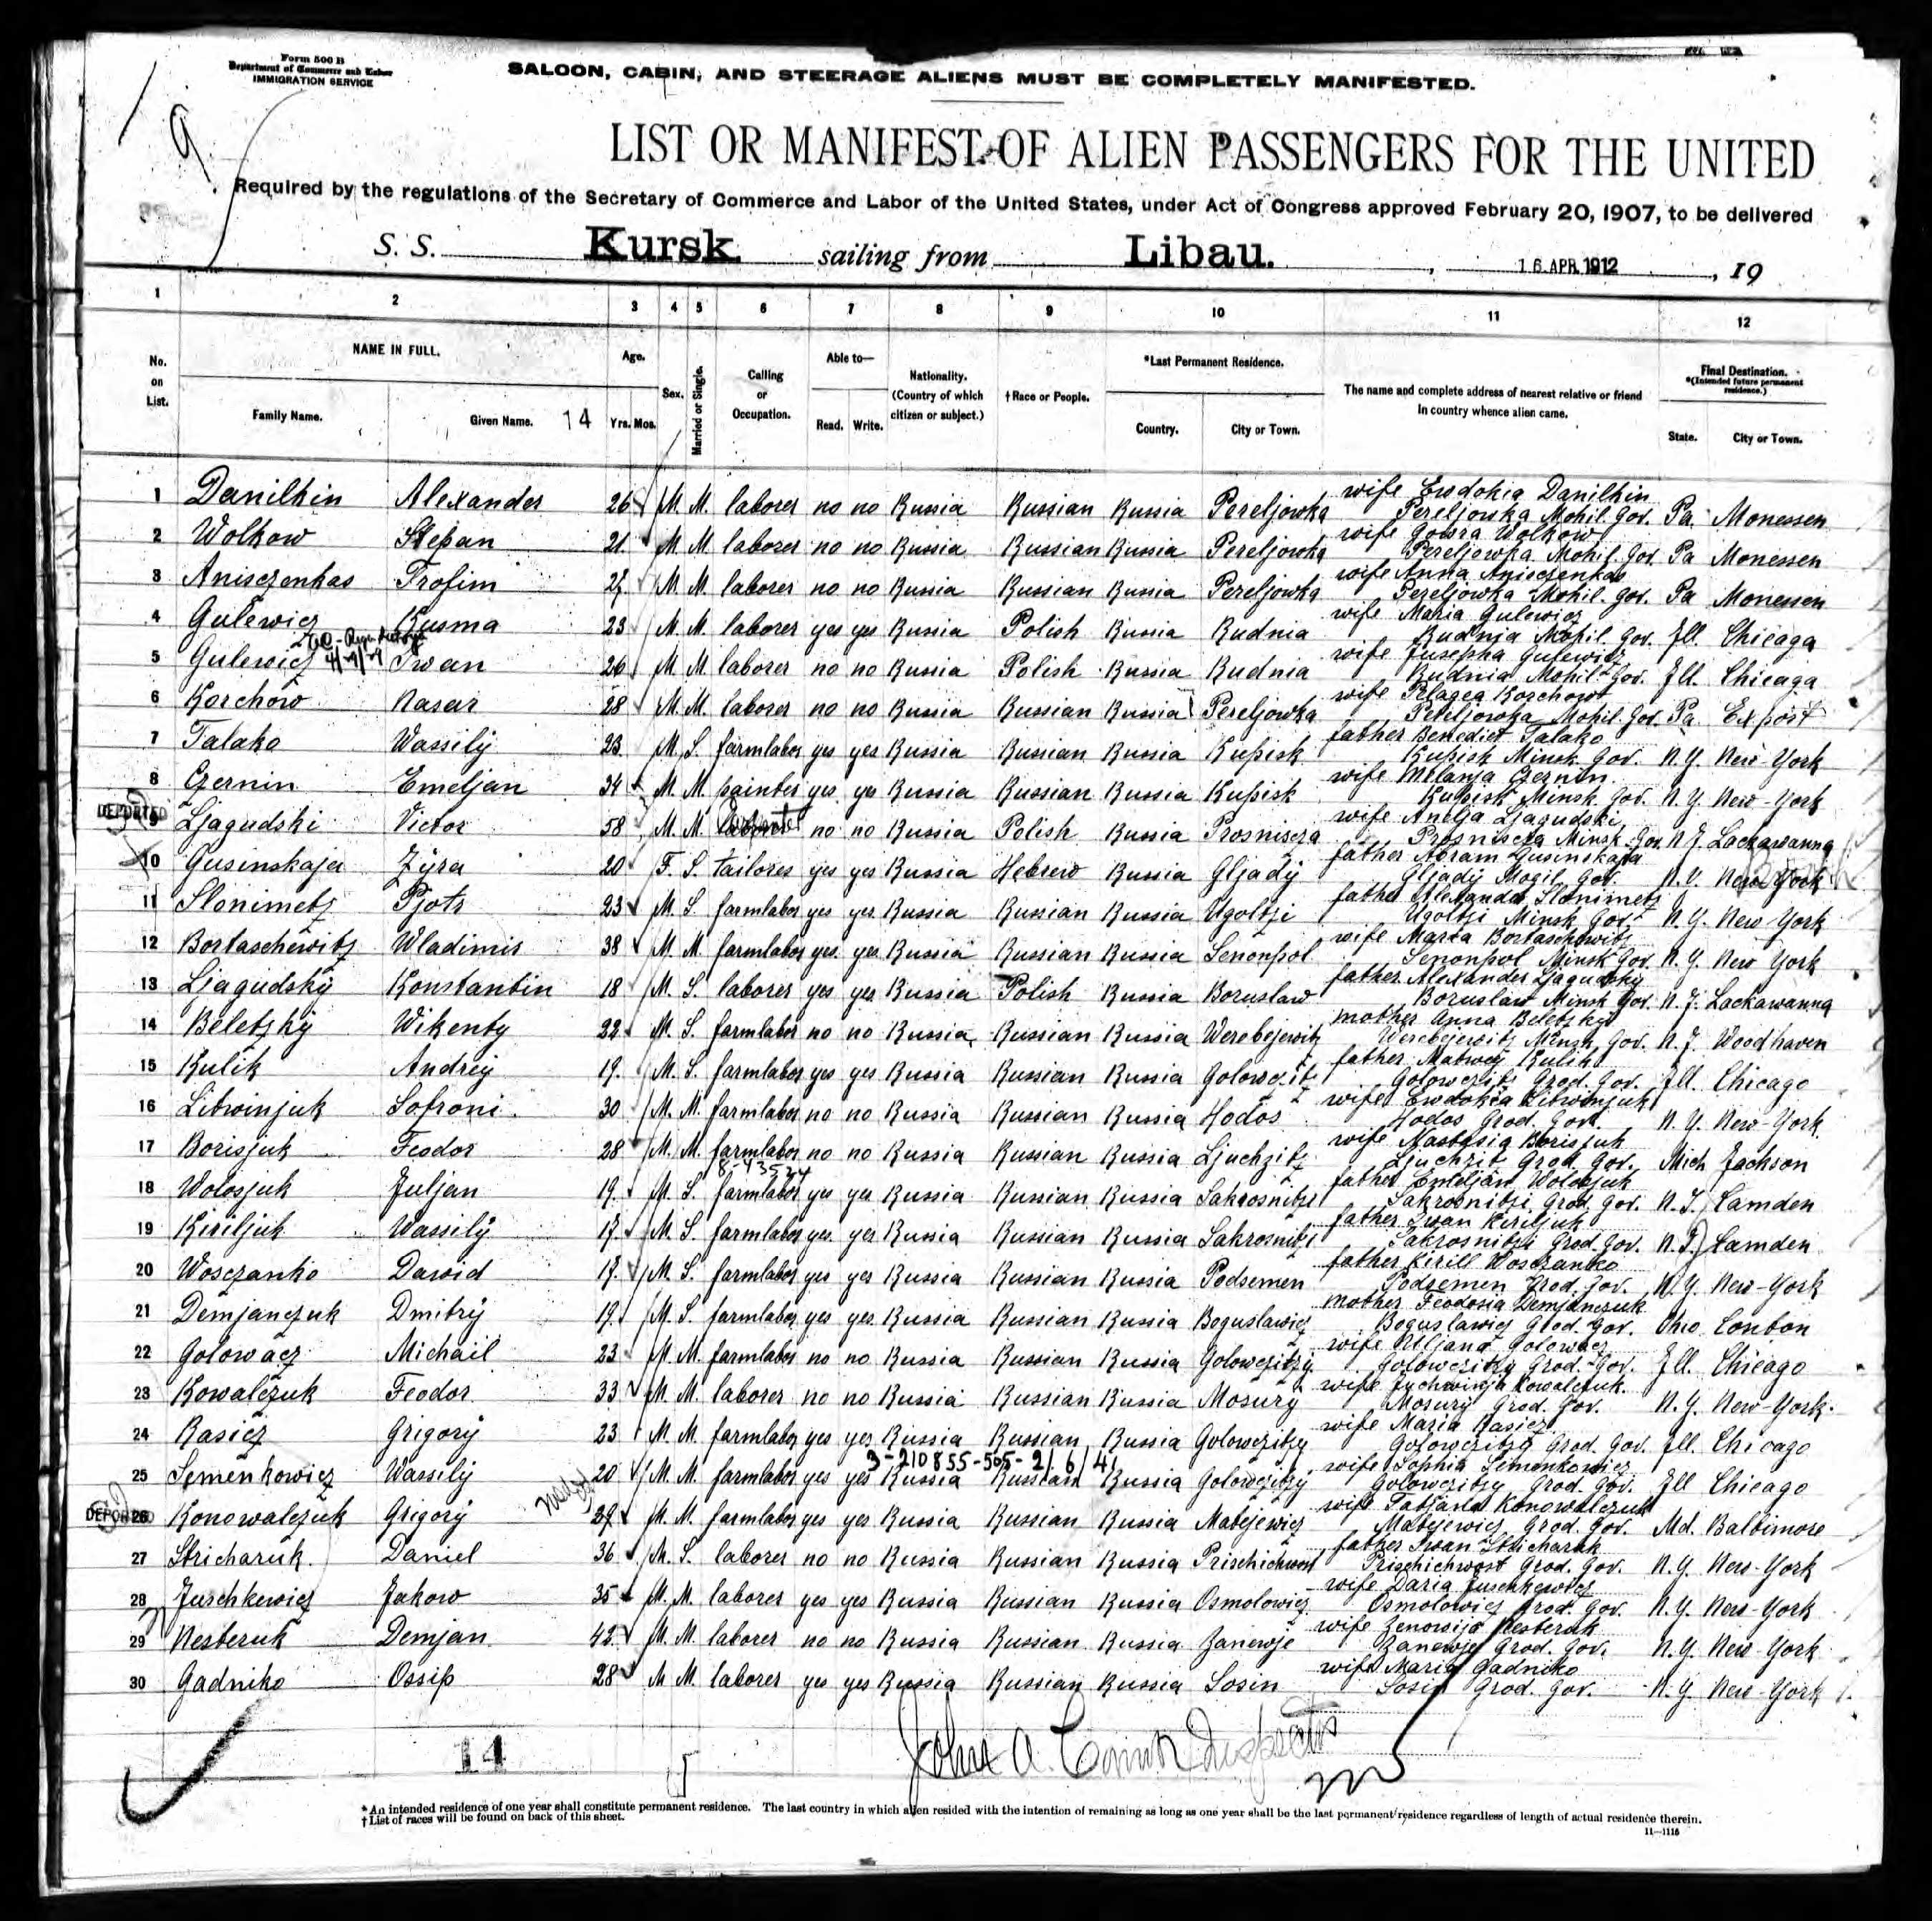 Form 500 B
Department of Commerce and Labor
IMMIGRATION SERVICE
SALOON, CABIN, AND STEERAGE ALIENS MUST BE COMPLETELY MANIFESTED.
LIST OR MANIFEST OF ALIEN PASSENGERS FOR THE UNITED
Required by the regulations of the Secretary of Commerce and Labor of the United States, under Act of Congress approved February 20, 1907, to be delivered
S. S. Kursk. sailing from Libau. , 16 APR 1912 , 19
1 2 3 4 5 6 7 8 9 10 11 12
No. on List. NAME IN FULL. Family Name. Given Name. 14 Age. Yrs. Mos. Sex. Married or Single. Calling or Occupation. Able to— Read. Write. Nationality. (Country of which citizen or subject.) †Race or People. *Last Permanent Residence. Country. City or Town. The name and complete address of nearest relative or friend in country whence alien came. Final Destination. *(Intended future permanent residence.) State. City or Town.
1 Danilhin Alexander 26 M. M. laborer no no Russia Russian Russia Pereljowka wife Ewdokia Danilhin Pereljowka Mohil. Gov. Pa. Monessen
2 Wolkow Stepan 21 M M. laborer no no Russia Russian Russia Pereljowka wife Wolkow Pereljowka Mohil. Gov. Pa Monessen
3 Anisczenkas Trofim M. M. laborer no no Russia Russian Russia Pereljowka wife Anna Anisczenkas Pereljowka Mohil. Gov. Pa Monessen
4 Gulewicz Kusma 23 M. M. laborer yes yes Russia Polish Russia Rudnia wife Maria Gulewicz Rudnia Mohil. Gov. Ill. Chicaga
5 Gulewicz Iwan 26 M. M. laborer no no Russia Polish Russia Rudnia wife Jusepha Gulewicz Rudnia Mohil. Gov. Ill. Chicaga
6 Korchow Nasar 28 M. M. laborer no no Russia Russian Russia Pereljowka wife Pelagea Korchow Pereljowka Mohil. Gov. Pa. Export
7 Talako Wassily 23 M. S. farmlabor yes yes Russia Russian Russia Kupisk father Benedict Talako Kupisk Minsk Gov. N.Y. New-York
8 Czernin Emeljan 34 M. M. painter yes yes Russia Russian Russia Kupisk wife Melanja Czernin Kupisk Minsk Gov. N.Y. New-York
DEPORTED 9 Ljagudski Victor 58 M. M. no no Russia Polish Russia Prosniscza wife Anelja Ljagudski Prosniscza Minsk Gov. N.J. Lackawanna
10 Gusinskaja Zyra 20 F. S. tailores yes yes Russia Hebrew Russia Gljady father Abram Gusinskaja Gljady Mogil. Gov. N.Y. New York
11 Slonimetz Pjotr 23 M. S farmlabor yes yes Russia Russian Russia Ugoltzi father Alexander Slonimetz Ugoltzi Minsk Gov. N.Y. New-York
12 Bortaschewitz Wladimir 38 M. M. farmlabor yes yes Russia Russian Russia Senonpol wife Maria Bortaschewitz Senonpol Minsk Gov. N.Y. New York
13 Ljagudsky Konstantin 18 M. S. laborer yes yes Russia Polish Russia Boruslaw father Alexander Ljagudsky Boruslaw Minsk Gov. N.J. Lackawanna
14 Beletzky Wikenty 22 M. S. farmlabor no no Russia Russian Russia Werebejewitz mother Anna Beletzky Werebejewitz Minsk Gov. N.J. Woodhaven
15 Kulik Andrey 19. M. S. farmlabor yes yes Russia Russian Russia father Matwey Kulik Grod. Gov. Ill. Chicago
16 Litwinjuk Sofroni. 30 M. M. farmlabor no no Russia Russian Russia Hodos wife Ewdokia Litwinjuk Hodos Grod. Gov. N.Y. New-York.
17 Borisjuk Feodor 28 M. M. farmlabor no no Russia Russian Russia Ljuchzitz wife Nastasia Borisjuk Grod. Gov. Mich Jackson
18 Wolosjuk Juljan 19. M. S. farmlabor yes yes Russia Russian Russia Sakrosnitzi father Emeljan Wolosjuk Sakrosnitzi Grod. Gov. N.J. Camden
19 Kiriljuk Wassily 17. M. S. farmlabor yes yes Russia Russian Russia Sakrosnitzi father Iwan Kiriljuk Sakrosnitzi Grod. Gov. N.J. Camden
20 Wosczanko Dawid 17. M. S. farmlabor yes yes Russia Russian Russia Podsemen father Kirill Wosczanko Podsemen Grod. Gov. N.Y. New-York
21 Demjanczuk Dmitry 19. M. S. farmlabor yes yes Russia Russian Russia Boguslawicz mother Feodosia Demjanczuk Boguslawicz Grod. Gov. Ohio London
22 Golowacz Michail 23 M. M. farmlabor no no Russia Russian Russia Golowczitzy wife Uljana Golowacz Golowczitzy Grod. Gov. Ill. Chicago
23 Kowalczuk Feodor 33 M. M. laborer no no Russia Russian Russia Mosury wife Kowalczuk. Mosury Grod. Gov. N.Y. New-York.
24 Rasicz Grigory 23 M. M. farmlabor yes yes Russia Russian Russia Golowczitzy wife Maria Rasicz Golowczitzy Grod. Gov. Ill. Chicago
3-210855-565-2/6/41
25 Semenkowicz Wassily 20 M. M. farmlabor yes yes Russia Russian Russia Golowczitzy wife Sophia Semenkowicz Golowczitzy Grod. Gov. Ill Chicago
DEPORTED 26 Konowalczuk Grigory 29 M. M. farmlabor yes yes Russia Russian Russia Matejewicz wife Tatjana Konowalczuk Matejewicz Grod. Gov. Md. Baltimore
27 Stricharuk. Daniel 36 M. S. laborer no no Russia Russian Russia Prischichwost father Iwan Stricharuk Prischichwost Grod. Gov. N.Y. New-York
28 Juschkewicz Jakow 35 M. M. laborer yes yes Russia Russian Russia Osmolowicz wife Daria Juschkewicz Osmolowicz Grod. Gov. N.Y. New-York
29 Nesteruk Demjan 42 M. M. laborer no no Russia Russian Russia Zanewje wife Zenowija Nesteruk Zanewje Grod. Gov. N.Y. New-York
30 Gadniko Ossip 28 M M. laborer yes yes Russia Russian Russia Sosin wife Maria Gadniko Sosin Grod. Gov. N.Y. New-York
14
John A. Inspector
*An intended residence of one year shall constitute permanent residence. The last country in which alien resided with the intention of remaining as long as one year shall be the last permanent residence regardless of length of actual residence therein.
†List of races will be found on back of this sheet.
11—1116